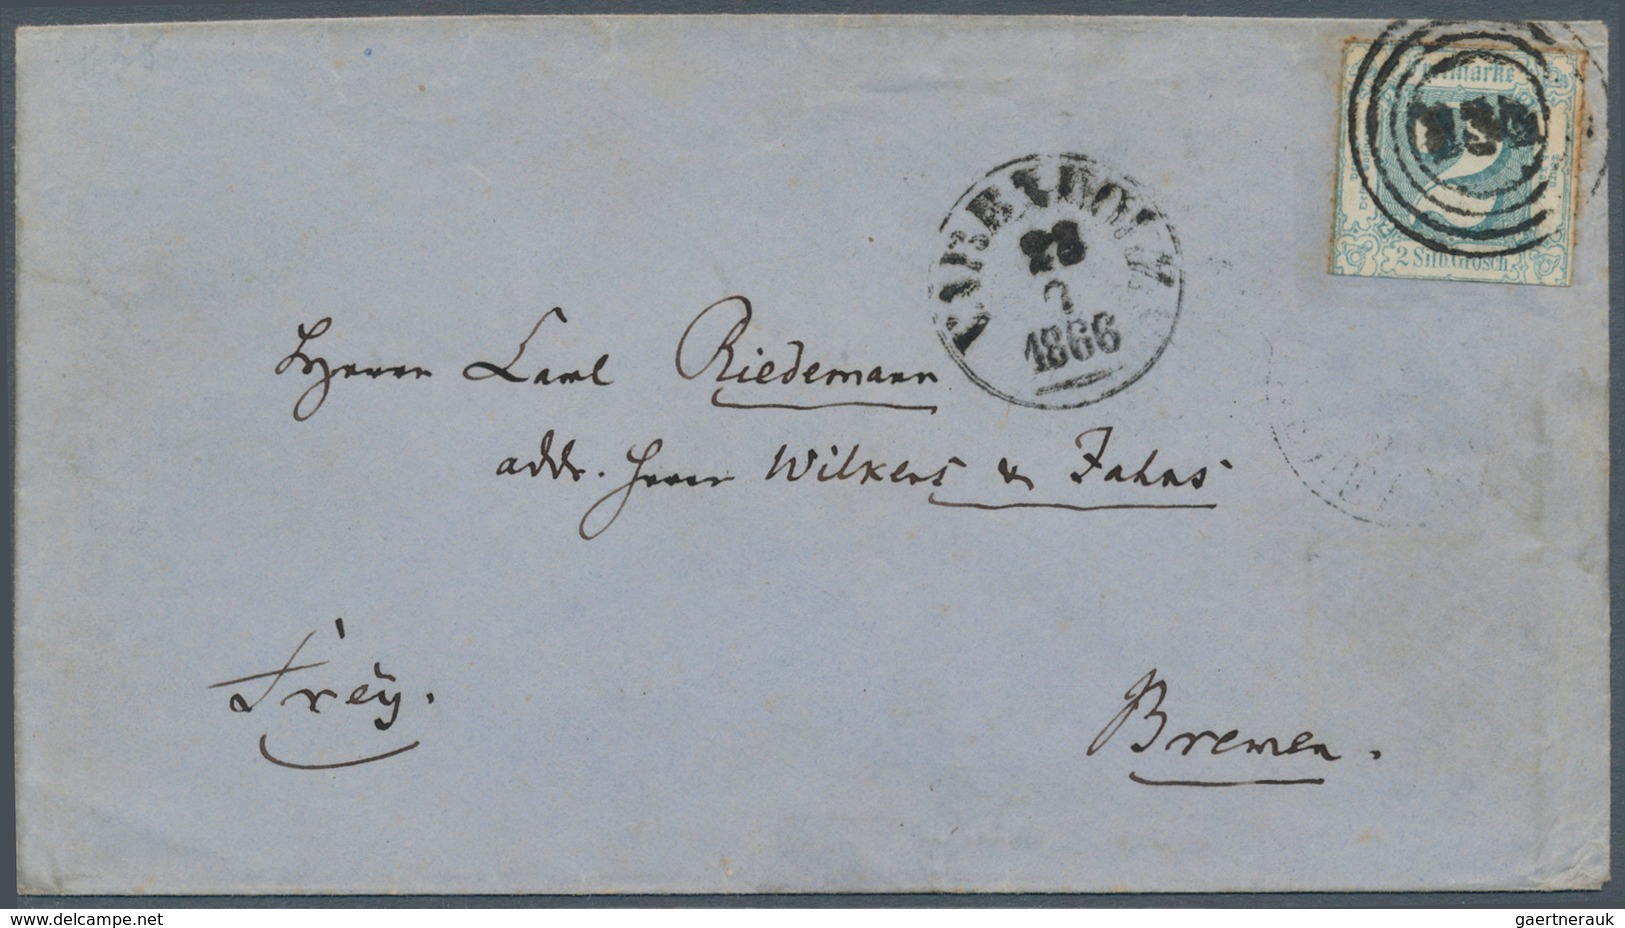 Postmarke
2 Silb Grosch.
VARENHOLZ
23
7
1866
Herrn Carl Riedemann
addr. Herrn Wilkens & Jahns
frey.
Bremen.
www.delcampe.net
gaertnerauk